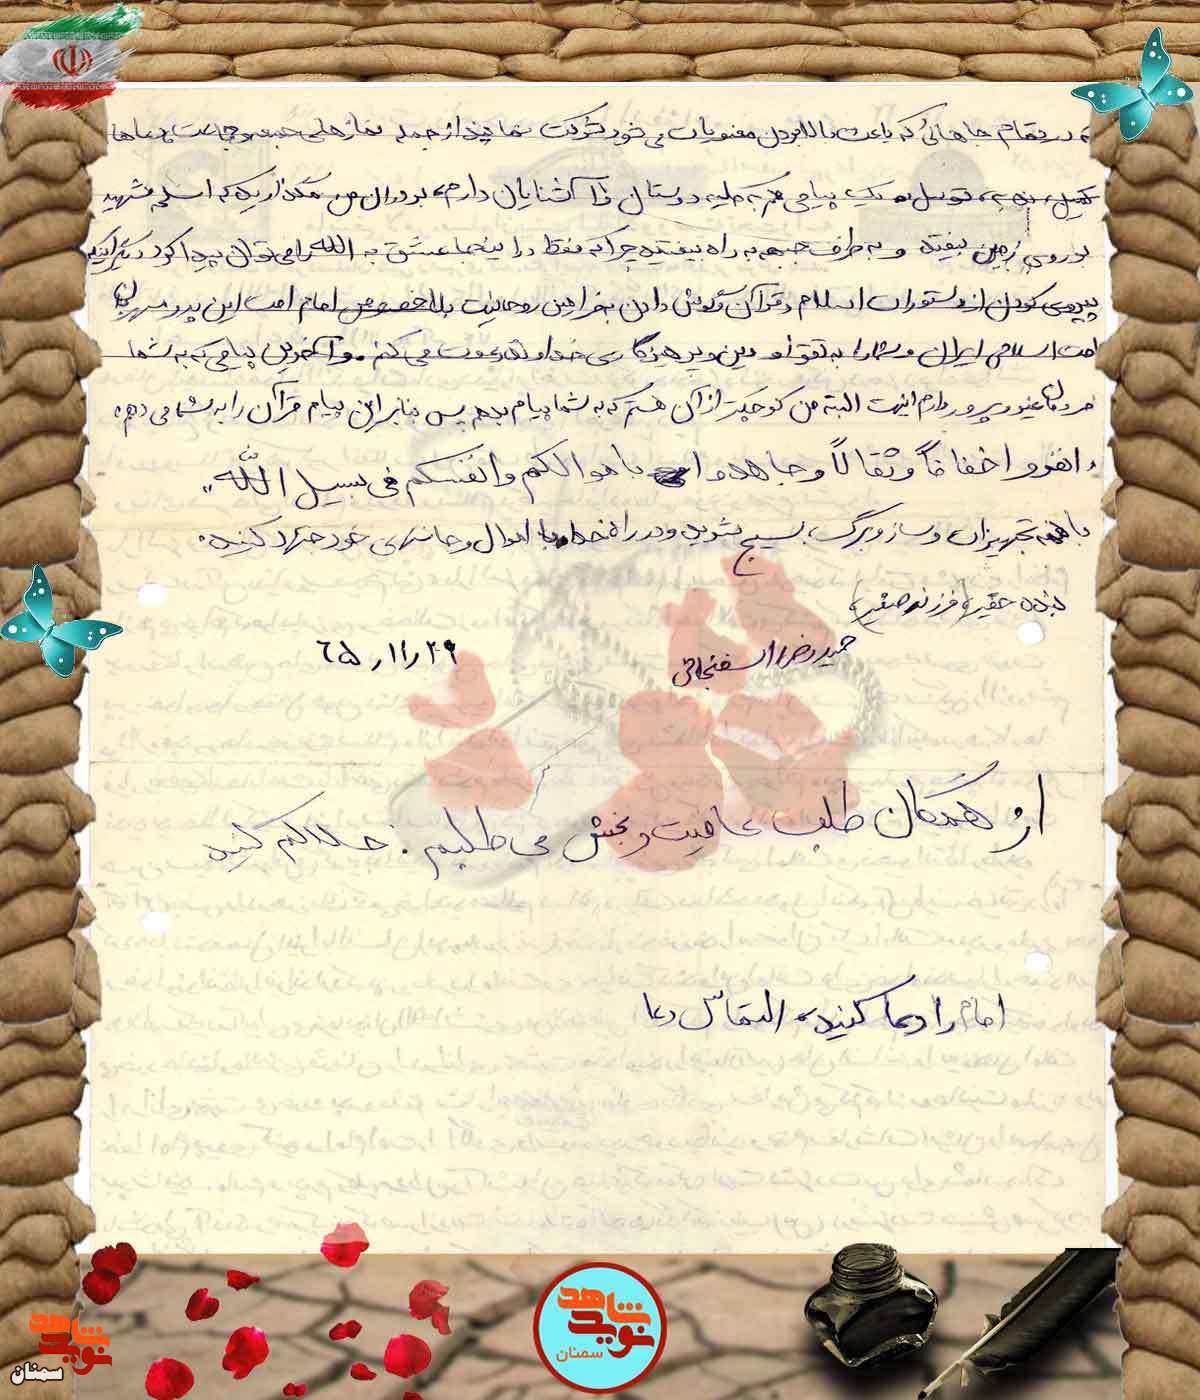 که در تمام جاهائی که باعث بالا بردن معنویات می‌شود شرکت نمائید از جمله نمازهای جمعه و جماعت و دعاها
کمیل، ندبه، توسل و یک پیامی هم به کلیه دوستان و آشنایان دارم، برادران من مگذارید که اسلحه شهید
بر روی زمین بیفتد و به طرف جبهه به راه بیفتید چرا که فقط در اینجا عشق به الله را می‌توان پیدا کرد دیگر اینکه
پیروی کردن از دستورات اسلام و قرآن و گوش دادن به فرامین روحانیت بالاخصوص امام امت این پدر مهربان
امت اسلامی ایران و شما را به تقوا و دین و پرهیزگاری خداوند دعوت می‌کنم. و آخرین پیامی که به شما
مردمان غیور و پرور دارم اینست البته من کوچکتر از آن هستم که به شما پیام بدهم پس بنابراین پیام قرآن را به شما می‌دهم:
«انفروا خفافاً و ثقالاً و جاهدوا باموالکم و انفسکم فی سبیل الله»
با همه تجهیزات و ساز و برگ، بسیج شوید و در راه خدا با اموال و جانهای خود جهاد کنید.
بنده حقیر (فرزند صغیر)
حمیدرضا اسفنجانی
۶۵/۱۱/۲۹
از همگان طلب عافیت و بخشش می‌طلبم: حلالم کنید
امام را دعا کنید، التماس دعا
نوید شاهد
سمنان
نوید شاهد
سمنان